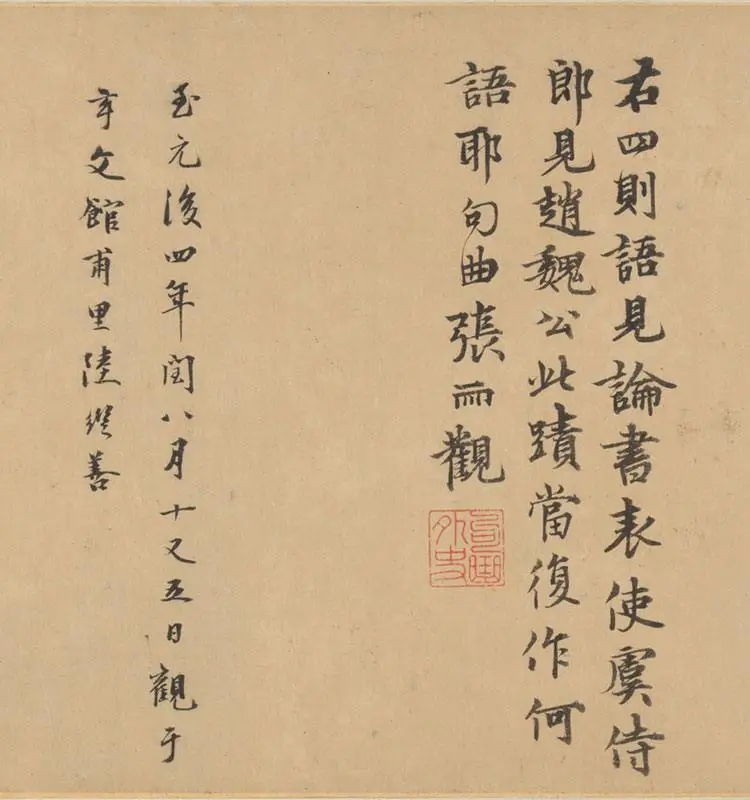 右四則語見論書表使虞侍
郎見趙魏公此蹟當復作何
語耶句曲張雨觀
句曲外史
至元後四年閏八月十又五日觀于
玄文館甫里陸繼善